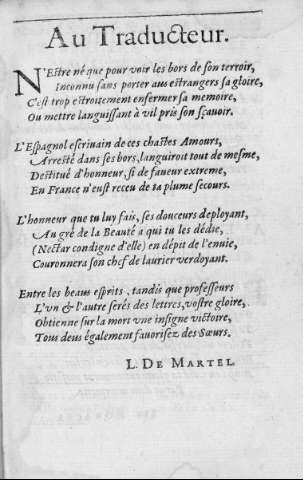 Au Traducteur.
N'Estre né que pour voir les bors de son terroir,
Inconnu sans porter aus estrangers sa gloire,
C'est trop estroitement enfermer sa memoire,
Ou mettre languissant à vil pris son sçavoir.
L'Espagnol escriuain de ces chastes Amours,
Arresté dans ses bors, languiroit tout de mesme,
Destitué d'honneur, si de faueur extreme,
En France n'eust receu de ta plume secours.
L'honneur que tu luy fais, ses douceurs deployant,
Au gré de la Beauté a qui tu les dédie,
(Nectar condigne d'elle) en dépit de l'enuie,
Couronnera son chef de laurier verdoyant.
Entre les beaus esprits, tandis que professeurs
L'vn & l'autre serés des lettres, vostre gloire,
Obtienne sur la mort vne insigne victoire,
Tous deus également fauorisez des Sœurs.
L. DE MARTEL